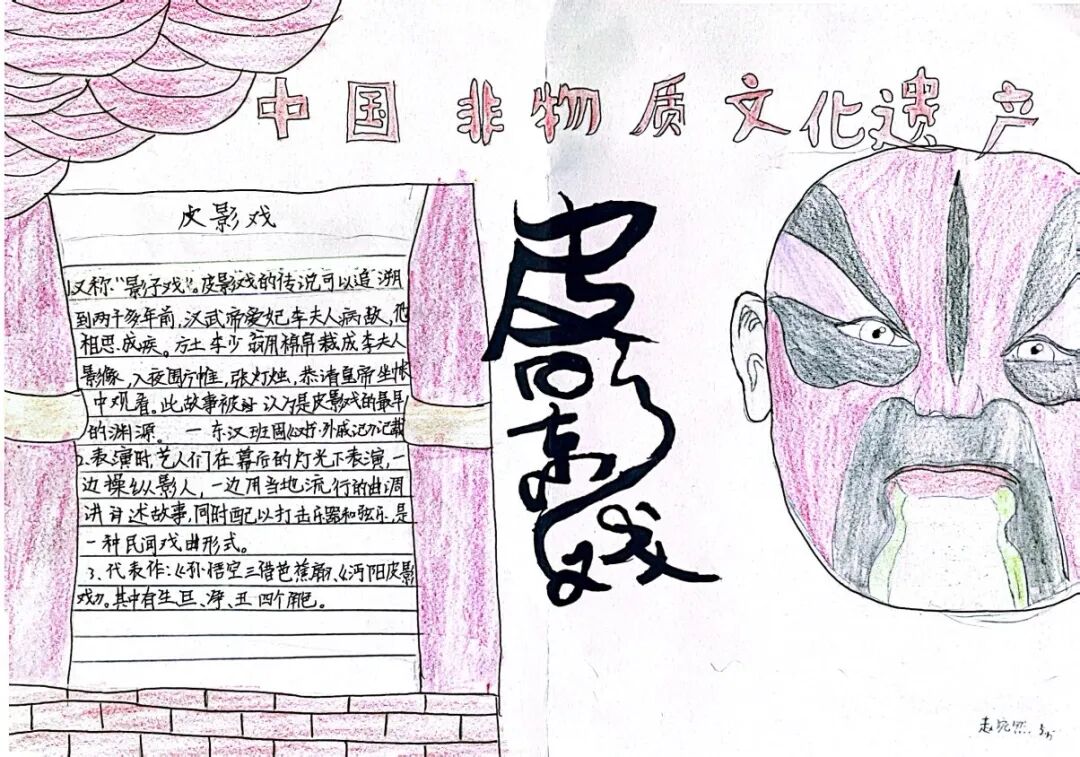 中国非物质文化遗产
皮影戏
又称"影子戏"。皮影戏的传说可以追溯
到两千多年前,汉武帝爱妃李夫人病故,他
相思成疾。方士李少翁用棉帛裁成李夫人
影像,入夜围方帷,张灯烛,恭请皇帝坐帐
中观看。此故事被 认为是皮影戏的最早
的渊源。 — 东汉班固《汉书·外戚记》记载
2.表演时,艺人们在幕后的灯光下表演,一
边操纵影人,一边用当地流行的曲调
讲 述故事,同时配以打击乐器和弦乐,是
一种民间戏曲形式。
3、代表作:《孙悟空三借芭蕉扇》、《沔阳皮影
戏》。其中有生、旦、净、丑四个角色。
皮影戏